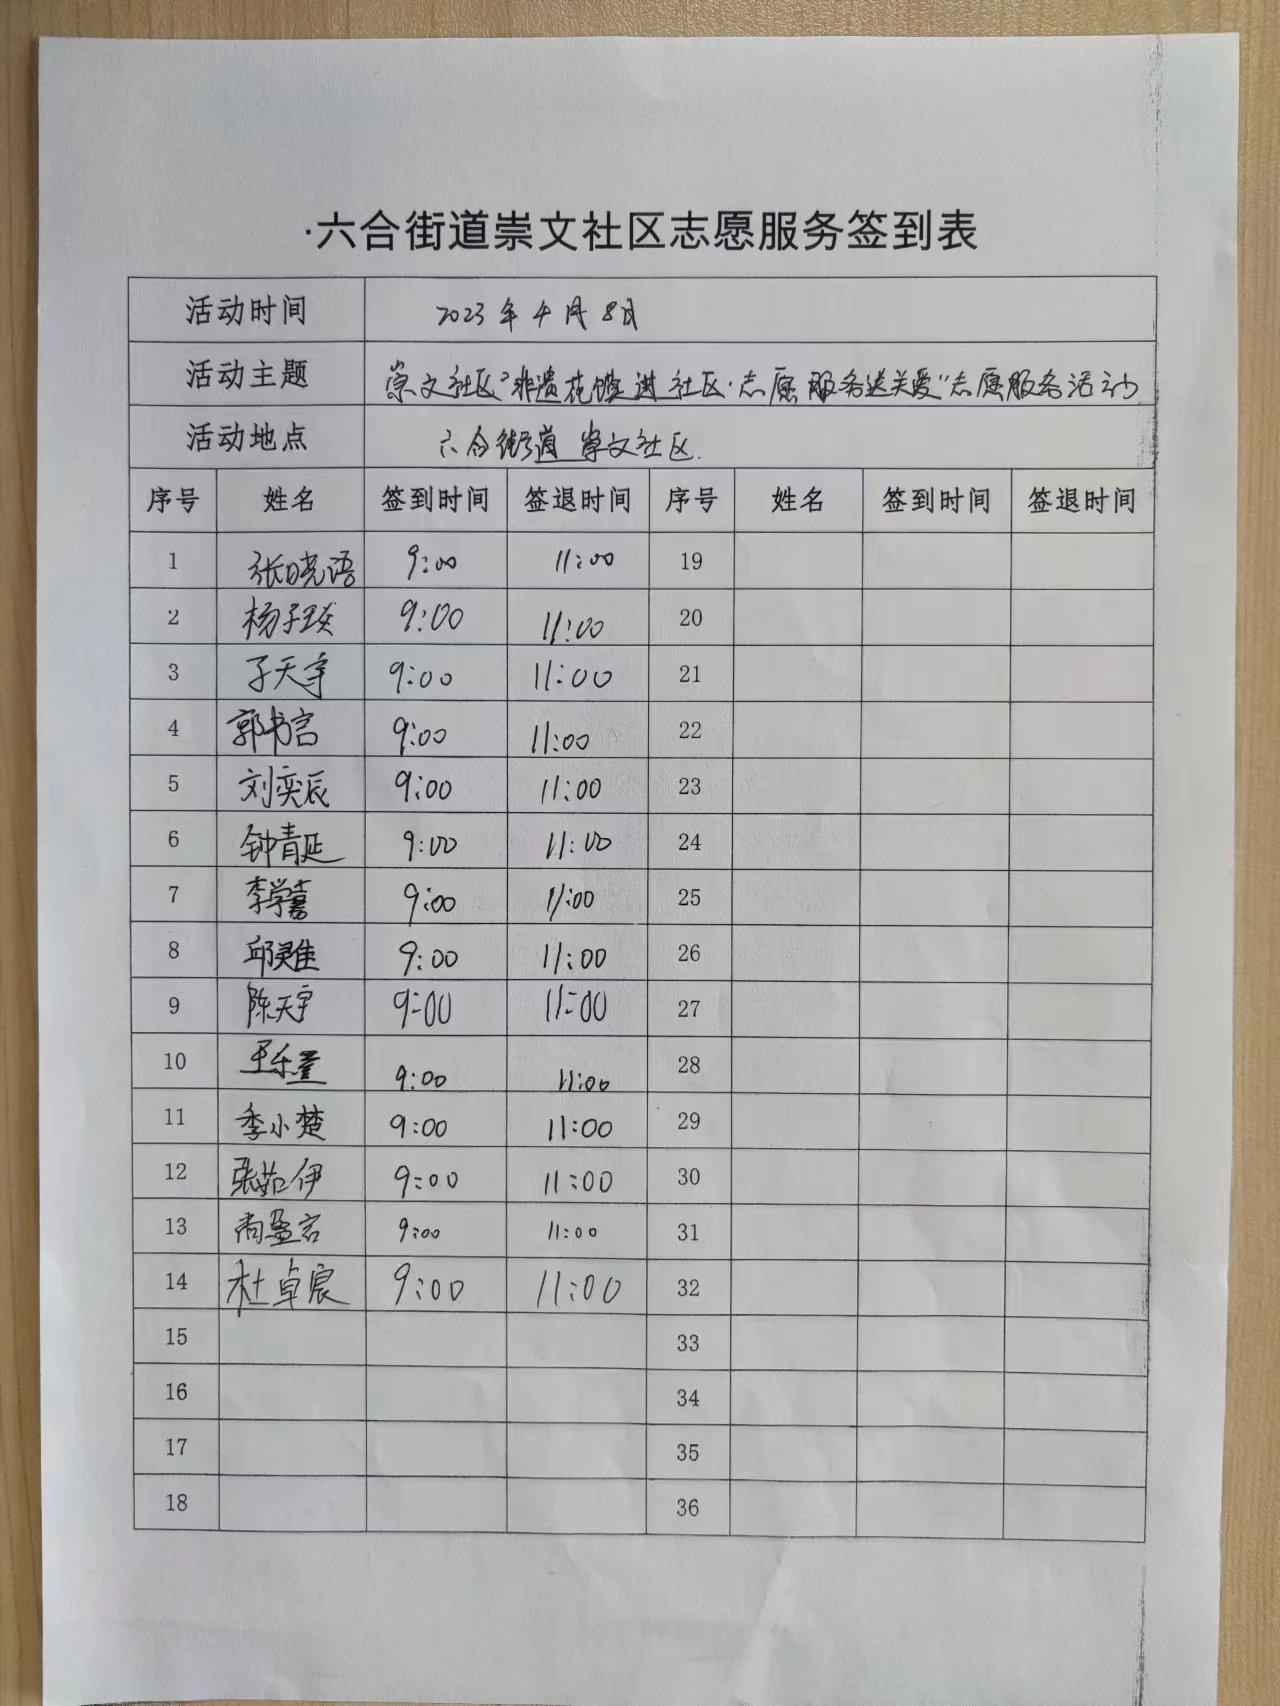 ·六合街道崇文社区志愿服务签到表
活动时间 2023年4月8日
活动主题 崇文社区"非遗花馍进社区·志愿服务送关爱"志愿服务活动
活动地点 六合街道崇文社区.
序号 姓名 签到时间 签退时间 序号 姓名 签到时间 签退时间
1 张晓语 9:00 11:00 19
2 杨子琰 9:00 11:00 20
3 天宇 9:00 11:00 21
4 郭书言 9:00 11:00 22
5 刘奕辰 9:00 11:00 23
6 钟青延 9:00 11:00 24
7 李学嘉 9:00 11:00 25
8 邱灵佳 9:00 11:00 26
9 陈天宇 9:00 11:00 27
10 王乐 9:00 11:00 28
11 季小楚 9:00 11:00 29
12 张茹伊 9:00 11:00 30
13 尚盈言 9:00 11:00 31
14 杜卓宸 9:00 11:00 32
15 33
16 34
17 35
18 36